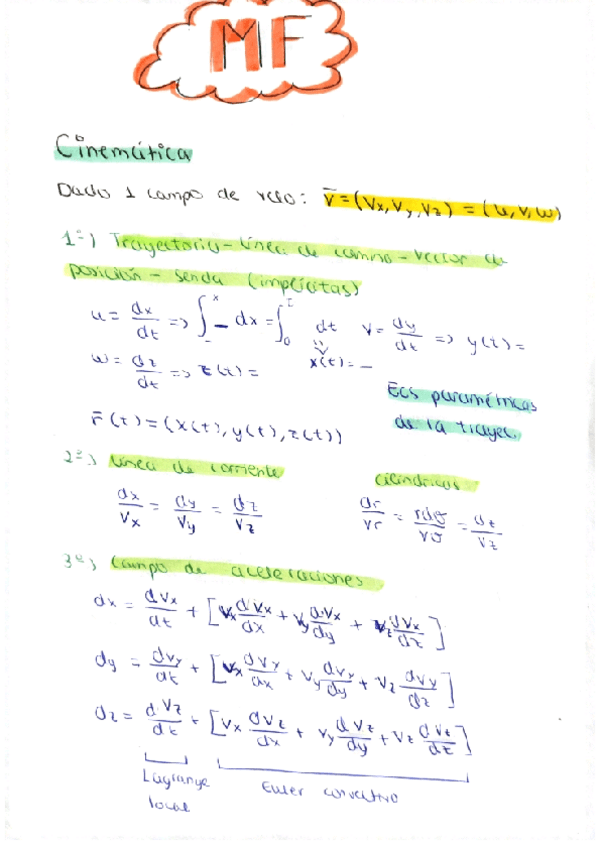 MF
Cinemática
Dado 1 campo de velo: v̄ = (Vx, Vy, Vz) = (u, v, w)
1º) Trayectoria - línea de camino - vector de
posición - senda (implícitas)
u = dx/dt => ∫ _ dx = ∫₀ᵗ dt v = dy/dt => y(t) =
w = dz/dt => z(t) = x(t) = _
Ecs paramétricas
r̄(t) = (x(t), y(t), z(t)) de la trayec.
2º) Línea de corriente cilíndricas
dx/Vx = dy/Vy = dz/Vz dr/vr = rdθ/vθ = dz/Vz
3º) Campo de aceleraciones
ax = dVx/dt + [Vx dVx/dx + Vy dVx/dy + Vz dVx/dz]
ay = dVy/dt + [Vx dVy/dx + Vy dVy/dy + Vz dVy/dz]
az = dVz/dt + [Vx dVz/dx + Vy dVz/dy + Vz dVz/dz]
Lagrange Euler convectivo
local